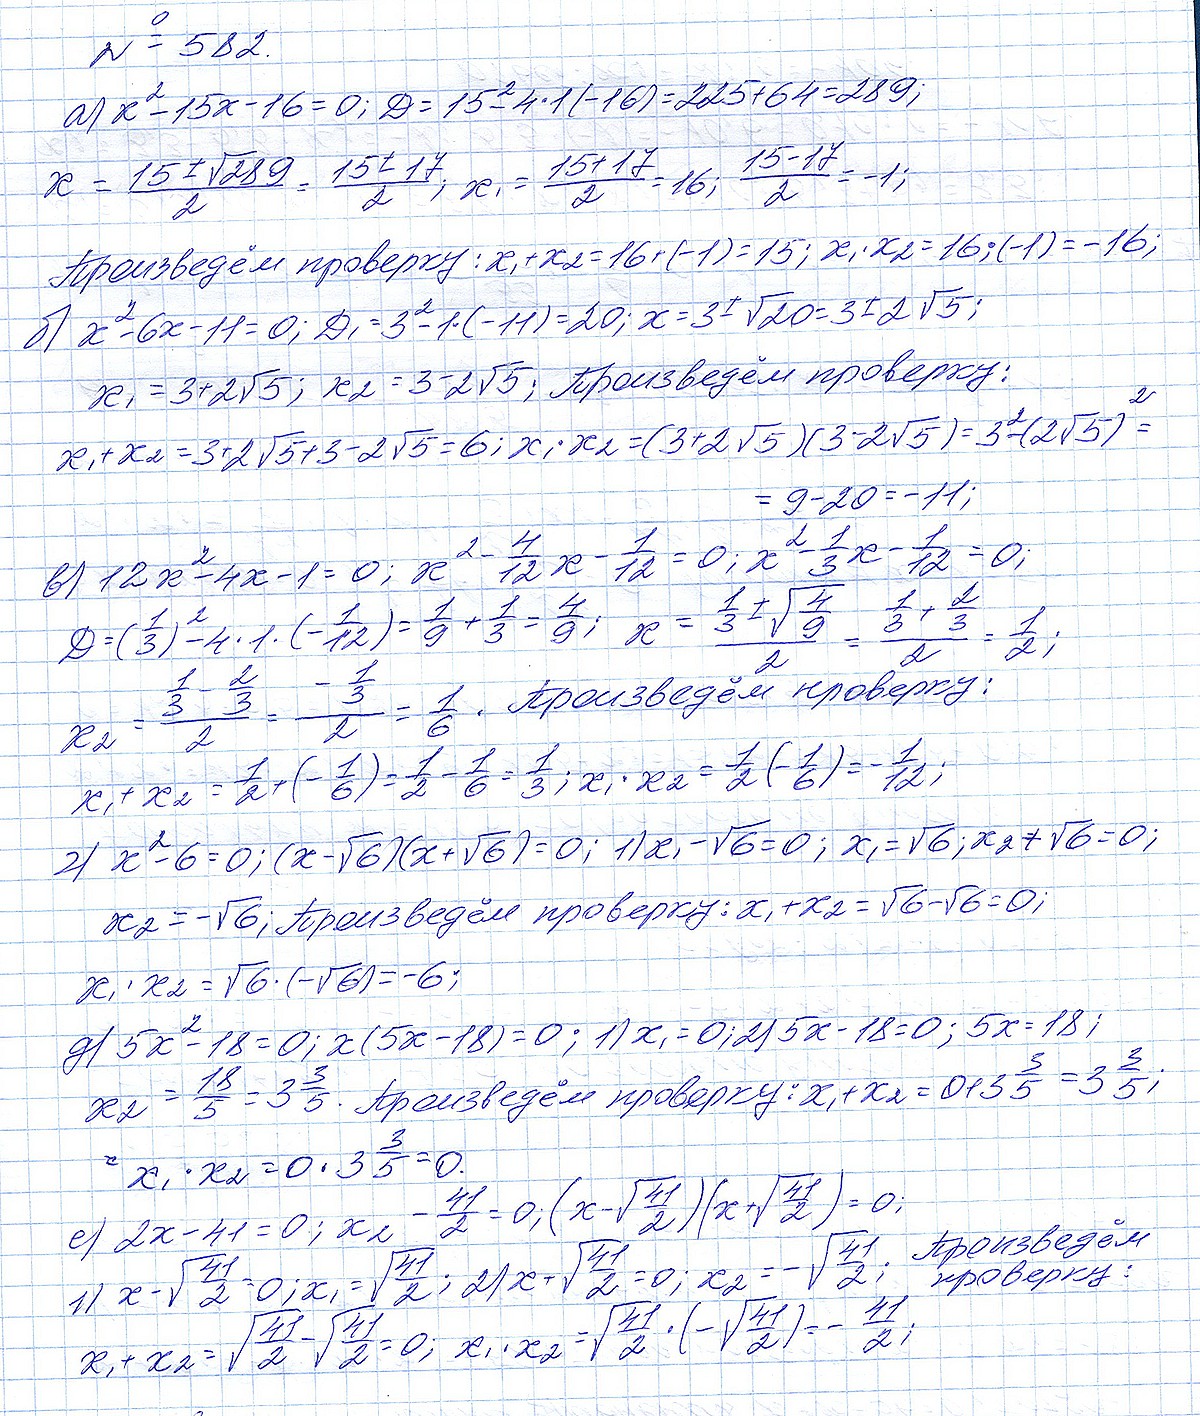 № 582.
а) x² - 15x - 16 = 0; D = 15² - 4·1(-16) = 225 + 64 = 289;
x = (15 ± √289)/2 = (15 ± 17)/2; x₁ = (15 + 17)/2 = 16; (15 - 17)/2 = -1;
Произведём проверку: x₁ + x₂ = 16 + (-1) = 15; x₁·x₂ = 16·(-1) = -16;
б) x² - 6x - 11 = 0; D₁ = 3² - 1·(-11) = 20; x = 3 ± √20 = 3 ± 2√5;
x₁ = 3 + 2√5; x₂ = 3 - 2√5; Произведём проверку:
x₁ + x₂ = 3 + 2√5 + 3 - 2√5 = 6; x₁·x₂ = (3 + 2√5)(3 - 2√5) = 3² - (2√5)² =
= 9 - 20 = -11;
в) 12x² - 4x - 1 = 0; x² - 4/12 x - 1/12 = 0; x² - 1/3 x - 1/12 = 0;
D = (1/3)² - 4·1·(-1/12) = 1/9 + 1/3 = 4/9; x = (1/3 ± √(4/9))/2 = (1/3 + 2/3)/2 = 1/2;
x₂ = (1/3 - 2/3)/2 = (-1/3)/2 = 1/6. Произведём проверку:
x₁ + x₂ = 1/2 + (-1/6) = 1/2 - 1/6 = 1/3; x₁·x₂ = 1/2(-1/6) = -1/12;
г) x² - 6 = 0; (x - √6)(x + √6) = 0; 1) x₁ - √6 = 0; x₁ = √6; x₂ + √6 = 0;
x₂ = -√6; Произведём проверку: x₁ + x₂ = √6 - √6 = 0;
x₁·x₂ = √6·(-√6) = -6;
д) 5x² - 18 = 0; x(5x - 18) = 0; 1) x₁ = 0; 2) 5x - 18 = 0; 5x = 18;
x₂ = 18/5 = 3 3/5. Произведём проверку: x₁ + x₂ = 0 + 3 3/5 = 3 3/5;
x₁·x₂ = 0·3 3/5 = 0.
е) 2x - 41 = 0; x₂ - 41/2 = 0; (x - √(41/2))(x + √(41/2)) = 0;
1) x - √(41/2) = 0; x₁ = √(41/2); 2) x + √(41/2) = 0; x₂ = -√(41/2); Произведём
проверку:
x₁ + x₂ = √(41/2) - √(41/2) = 0; x₁·x₂ = √(41/2)·(-√(41/2)) = -41/2;